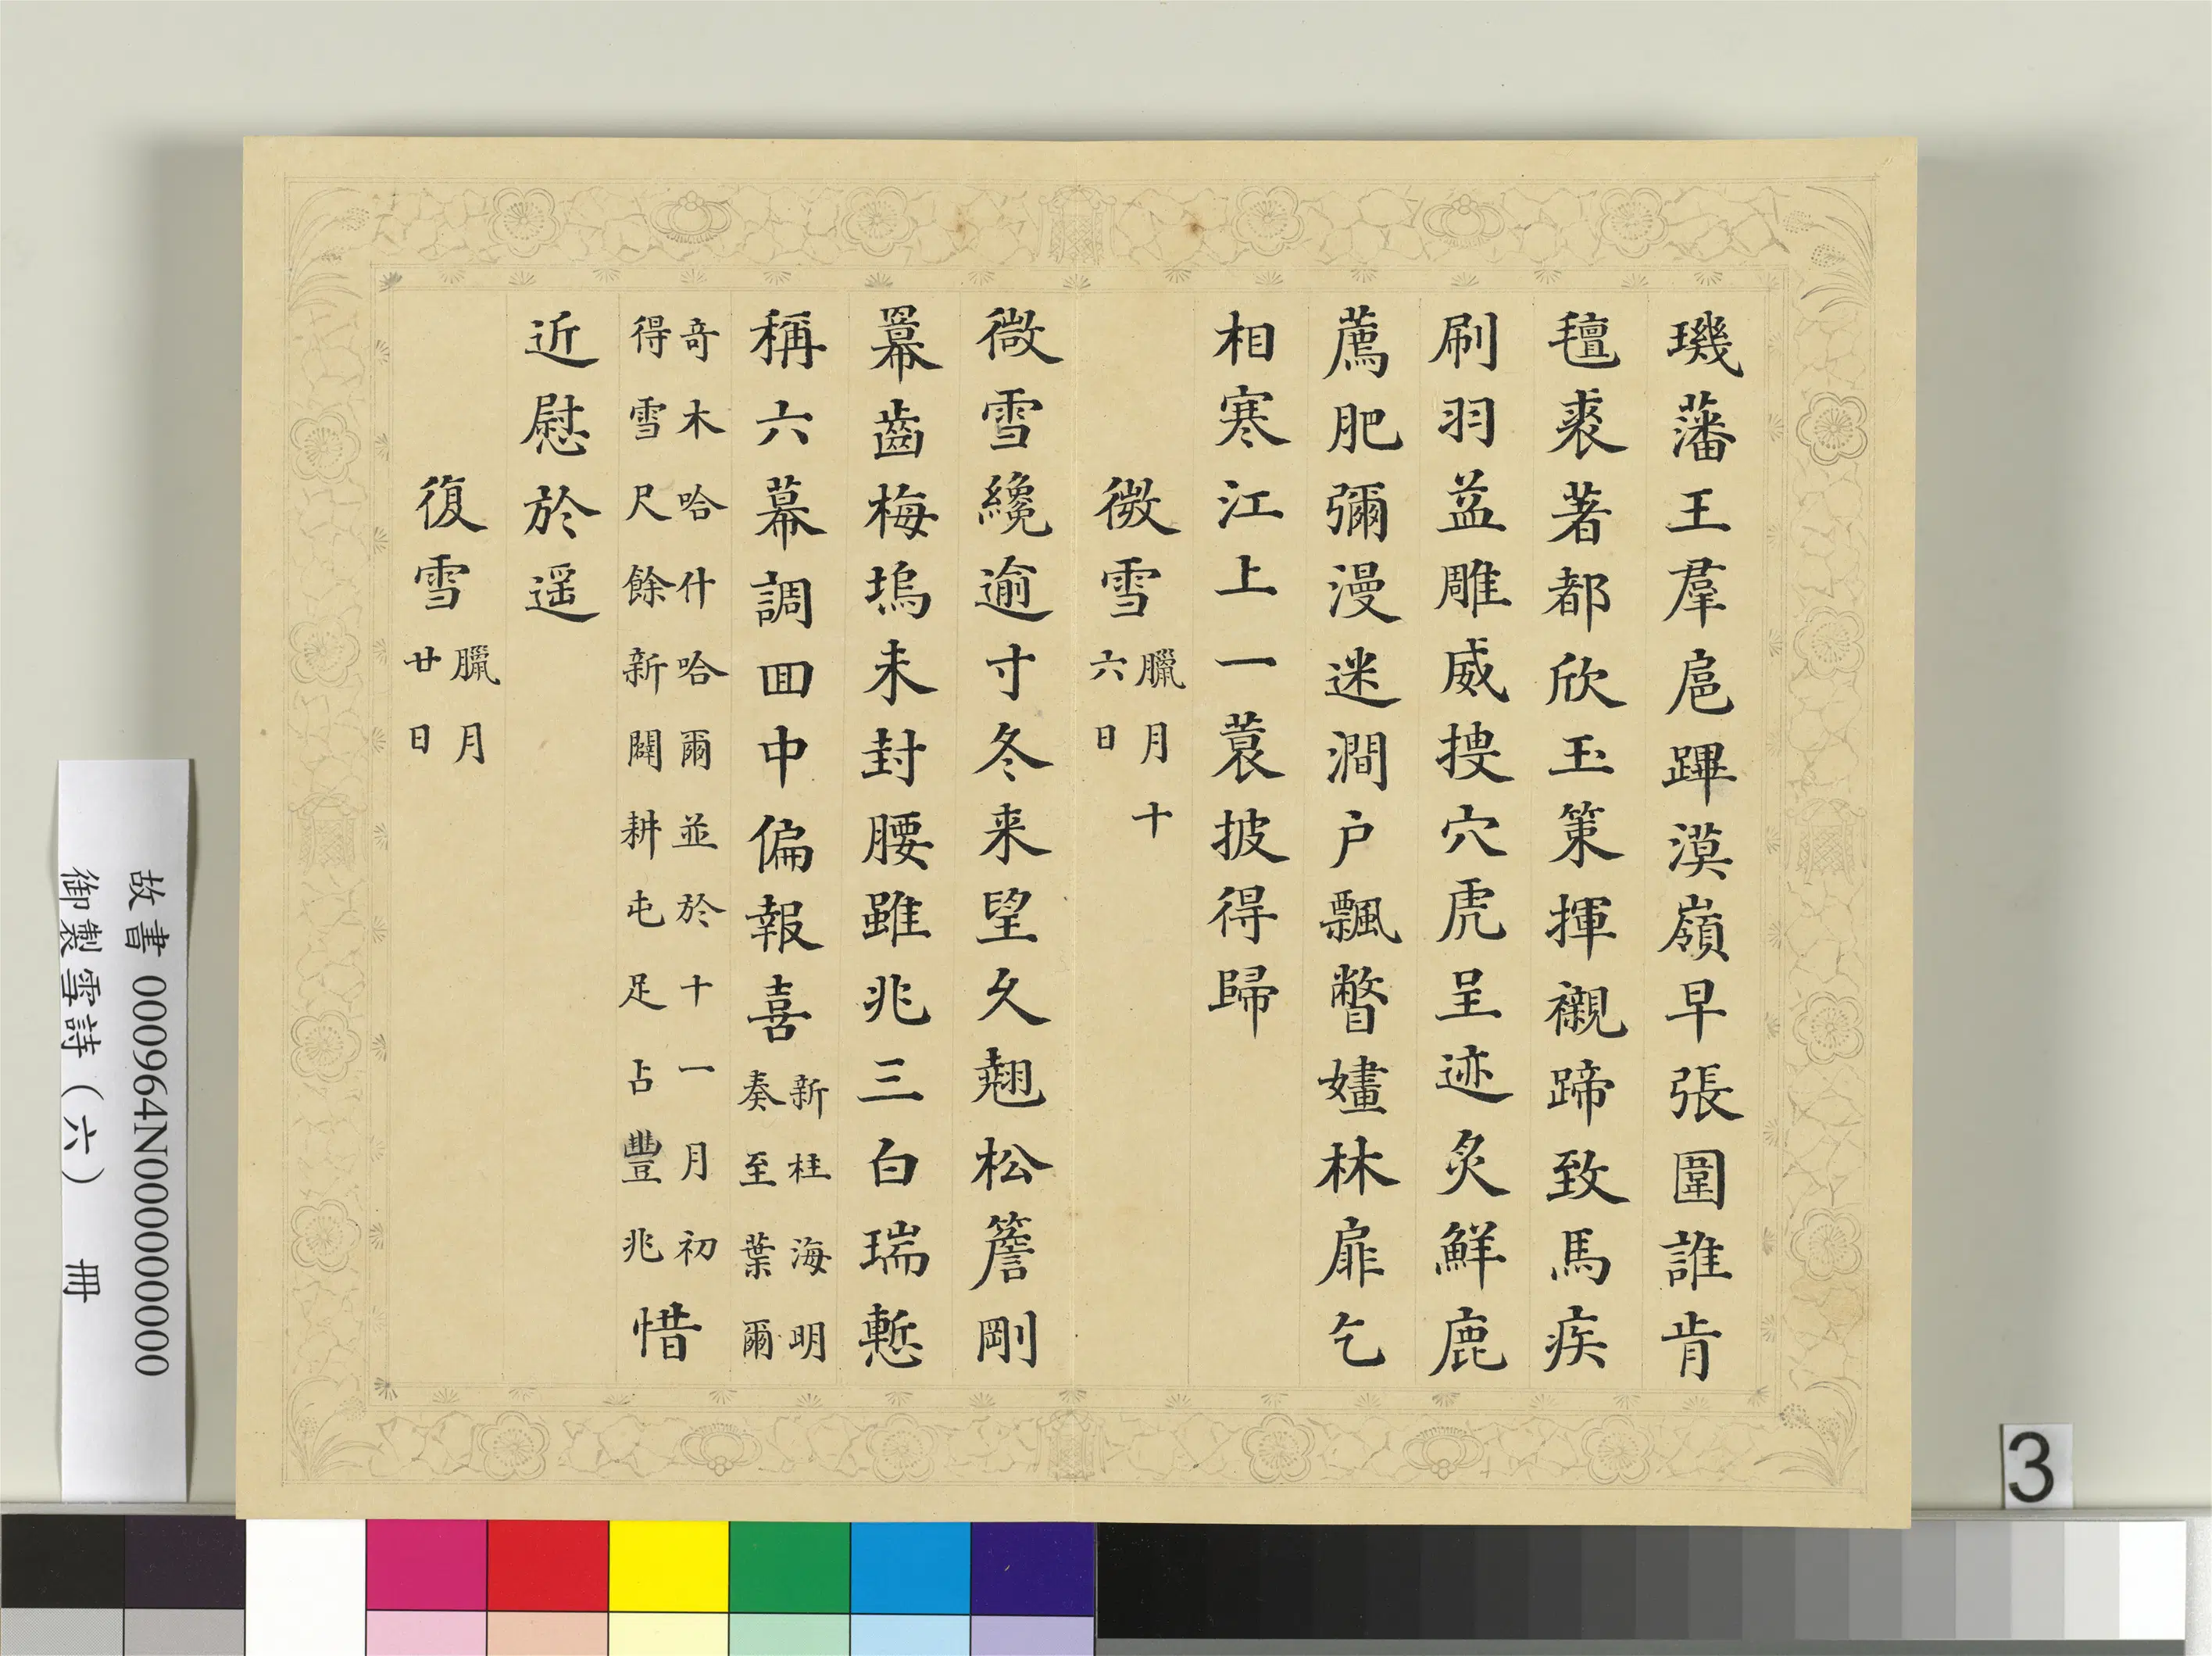 璣藩王羣扈蹕漠嶺早張圍誰肯
氊裘著都欣玉策揮襯蹄致馬疾
刷羽益雕威捜穴虎呈迹炙鮮鹿
薦肥彌漫迷澗户飄瞥嫿林扉乞
相寒江上一蓑披得歸
微雪臘月十六日
微雪纔逾寸冬来望久翹松簷剛
羃齒梅塢未封腰雖兆三白瑞慙
稱六幕調回中偏報喜新柱海明奏至葉爾
竒木哈什哈爾並於十一月初得雪尺餘新闢耕屯足占豐兆惜
近慰於遥
復雪臘月廿日
故書 000964N000000000
御製雪詩（六） 冊
3